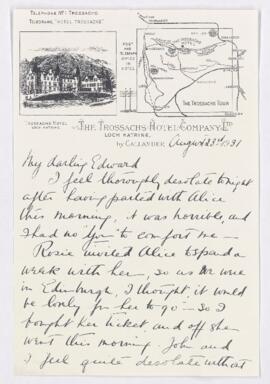 TELEPHONE Nº 1 TROSSACHS.
TELEGRAMS, "HOTEL TROSSACHS"
POST AND TELEGRAPH OFFICE IN HOTEL
THE TROSSACHS TOUR
TROSSACHS HOTEL
LOCH KATRINE
THE TROSSACHS HOTEL COMPANY LTD
LOCH KATRINE,
by CALLANDER August 23rd 1931
My darling Edward
I feel thoroughly desolate tonight
after having parted with Alice
this morning, it was horrible, and
I had no "you" to comfort me —
Rosie invited Alice to spend a
week with her, so as we were
in Edinburgh, I thought it would
be lovely for her to go — so I
bought her ticket, and off she
went this morning. John and
I feel quite desolate without